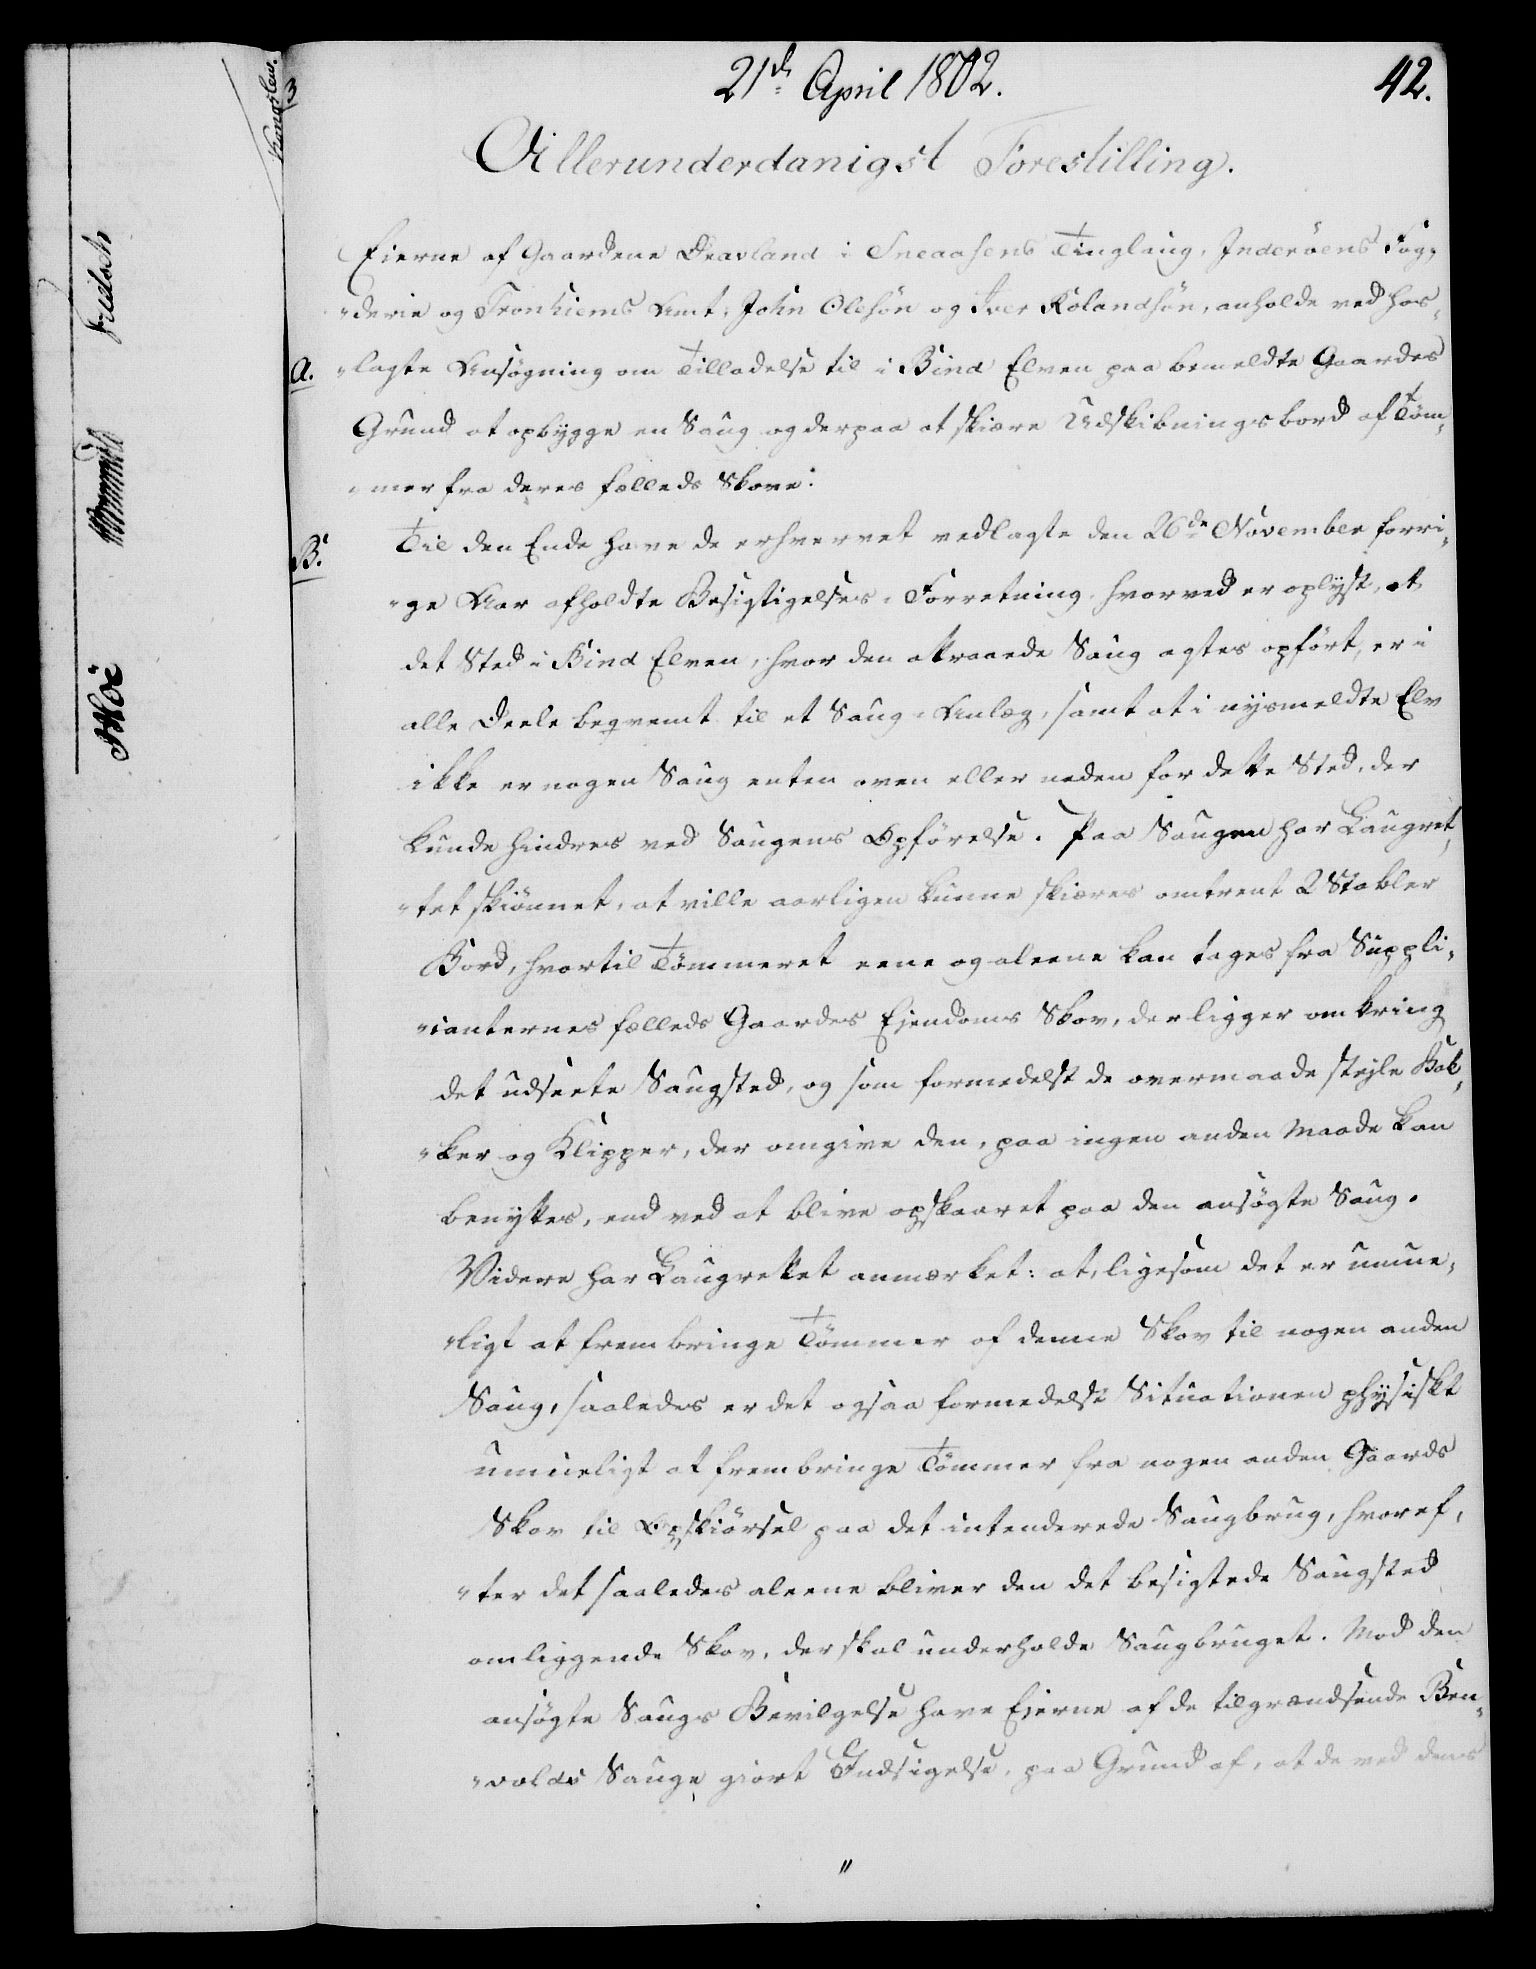 21de April 1802.
42.
Allerunderdanigst Forestilling.
Eierne af Gaardene Dravland i Sneaasens Tinglaug, Inderöens Fog„
„derie og Tronhiems Amt, John Olesön og Iver Rolandsön, anholde ved hos„
A.
„lagte Ansögning om Tilladelse til i Bind Elven paa bemeldte Gaardes
Grund at opbygge en Saug og derpaa at skiære Udskibningsbord af Töm„
„mer fra deres fælleds Skove:
B.
Til den Ende have de erhvervet vedlagte den 26de November forri„
„ge Aar afholdte Besigtigelses-Forretning, hvorved er oplyst, at
det Sted i Bind Elven, hvor den attraaede Saug agtes opfört, er i
alle Deele beqvemt til et Saug-Anlæg, samt at i nysmeldte Elv
ikke er nogen Saug enten oven eller neden for dette Sted, der
kunde hindres ved Saugens Opförelse. Paa Saugen har Laugret„
„tet skiönnet, at ville aarligen kunne skiæres omtrent 2 Stabler
Bord, hvortil Tömmeret eene og aleene kan tages fra Suppli„
„canternes fælleds Gaardes Ejendoms Skov, der ligger omkring
det udseete Saugsted, og som formedelst de overmaade stejle Bak„
„ker og Klipper, der omgive den, paa ingen anden Maade kan
benyttes, end ved at blive opskaaret paa den ansögte Saug.
Videre har Laugrettet anmærket: at, ligesom det er umue„
„ligt at frembringe Tömmer af denne Skov til nogen anden
Saug, saaledes er det ogsaa formedelst Situationen physiskt
umueligt at frembringe Tömmer fra nogen anden Gaards
Skov til Opskiörsel paa det intenderede Saugbrug, hvoref„
„ter det saaledes aleene bliver den det besigtede Saugsted
omliggende Skov, der skal underholde Saugbruget. Mod den
ansögte Saugs Bevilgelse have Eierne af de tilgrændsende Ben„
„volds Sauge giort Indsigelse, paa Grund af, at de ved dens
„
Fritsch
Moe